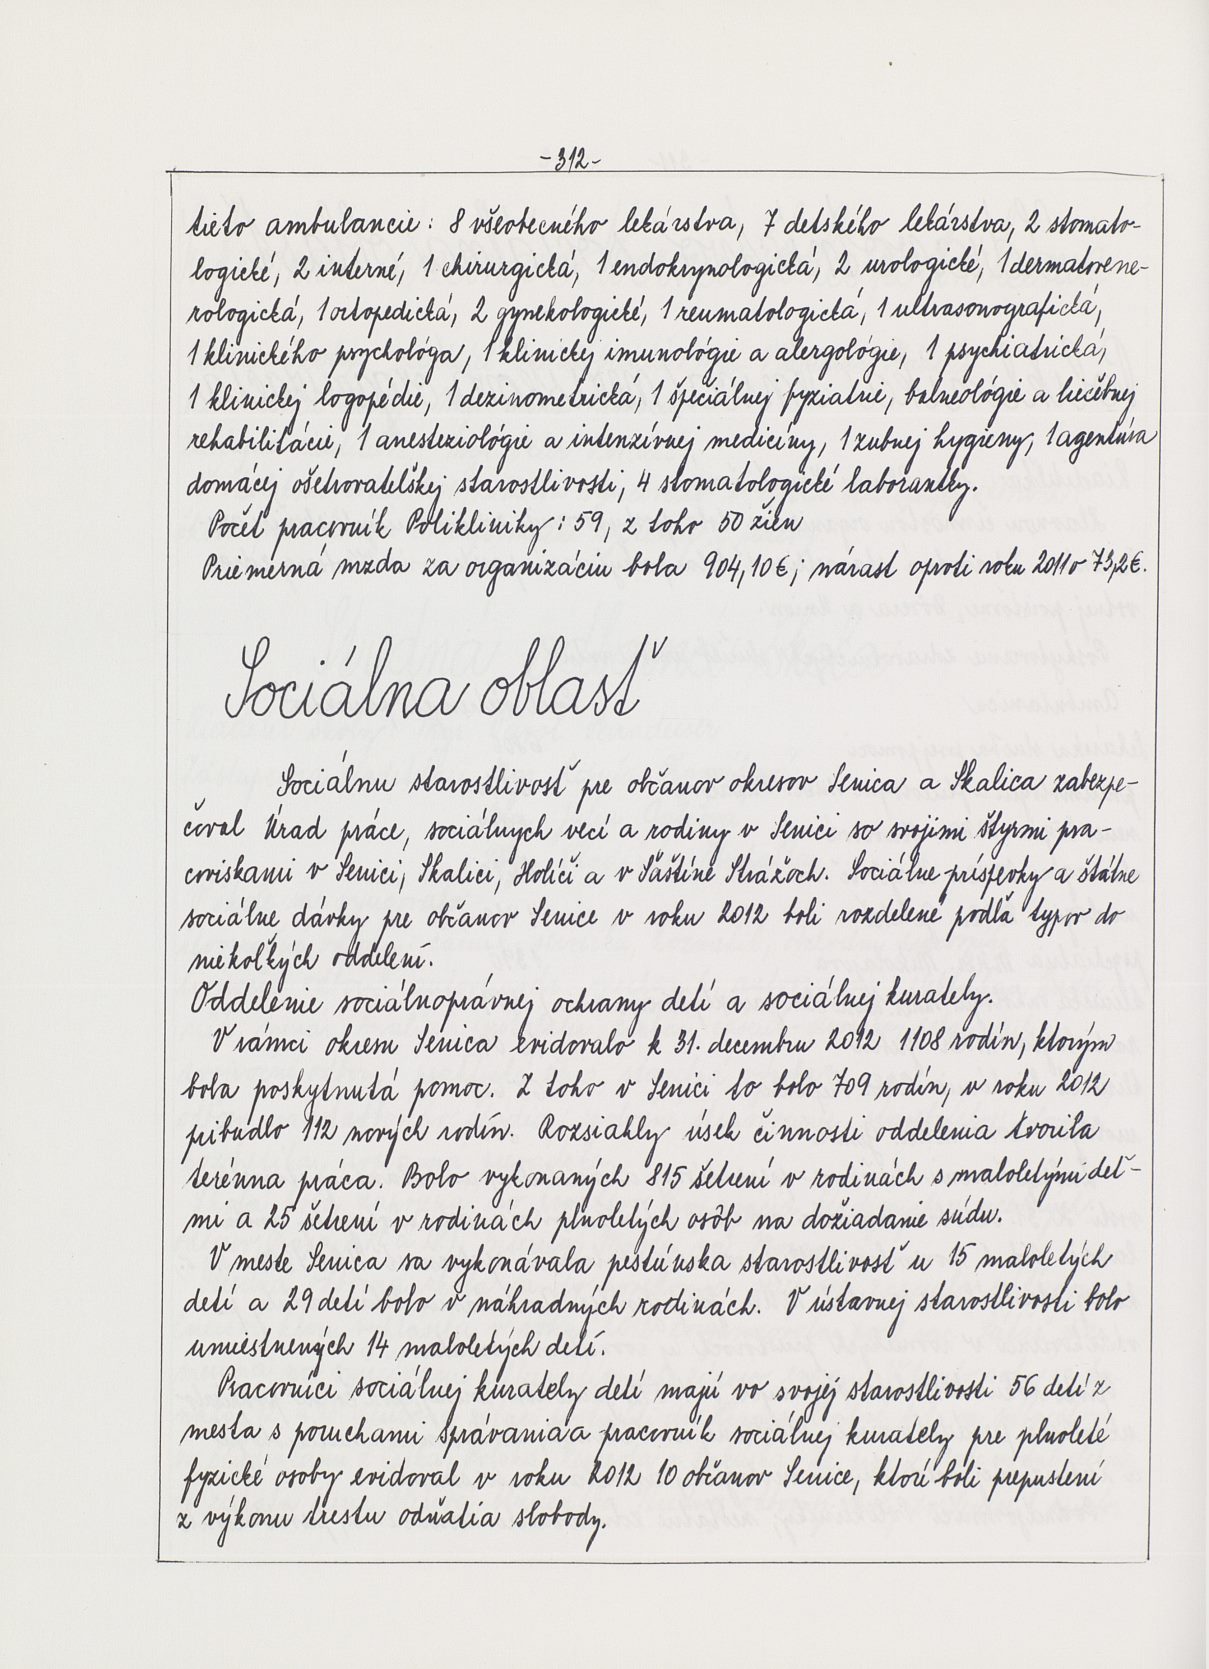 -312-
tieto ambulancie: 8 všeobecného lekárstva, 7 detského lekárstva, 2 stomato-
logické, 2 interné, 1 chirurgická, 1 endokrynologická, 2 urologické, 1 dermatovene-
rologická, 1 ortopedická, 2 gynekologické, 1 reumatologická, 1 ultrasonografická,
1 klinického psychológa, 1 klinickej imunológie a alergológie, 1 psychiatrická,
1 klinickej logopédie, 1 dezinometrická, 1 špeciálnej fyziatrie, balneológie a liečebnej
rehabilitácie, 1 anesteziológie a intenzívnej medicíny, 1 zubnej hygieny, 1 agentúra
domácej ošetrovateľskej starostlivosti, 4 stomatologické laborantky.
Počet pracovník Polikliniky: 59, z toho 50 žien
Priemerná mzda za organizáciu bola 904,10 €; nárast oproti roku 2011 o 73,2 €.
Sociálna oblasť
Sociálnu starostlivosť pre občanov okresov Senica a Skalica zabezpe-
čoval Úrad práce, sociálnych vecí a rodiny v Senici so svojimi štyrmi pra-
coviskami v Senici, Skalici, Holíči a v Šaštíne Strážoch. Sociálne príspevky a štátne
sociálne dávky pre občanov Senice v roku 2012 boli rozdelené podľa typov do
niekoľkých oddelení.
Oddelenie sociálnoprávnej ochrany detí a sociálnej kurately.
V rámci okresu Senica evidovalo k 31. decembru 2012 1108 rodín, ktorým
bola poskytnutá pomoc. Z toho v Senici to bolo 709 rodín, v roku 2012
pribudlo 112 nových rodín. Rozsiahly úsek činnosti oddelenia tvorila
terénna práca. Bolo vykonaných 815 šetrení v rodinách s maloletými deť-
mi a 25 šetrení v rodinách plnoletých osôb na dožiadanie súdu.
V meste Senica sa vykonávala pestúnska starostlivosť u 15 maloletých
detí a 29 detí bolo v náhradných rodinách. V ústavnej starostlivosti bolo
umiestnených 14 maloletých detí.
Pracovníci sociálnej kurately detí majú vo svojej starostlivosti 56 detí z
mesta s poruchami správania a pracovník sociálnej kurately pre plnoleté
fyzické osoby evidoval v roku 2012 10 občanov Senice, ktorí boli prepustení
z výkonu trestu odňatia slobody.